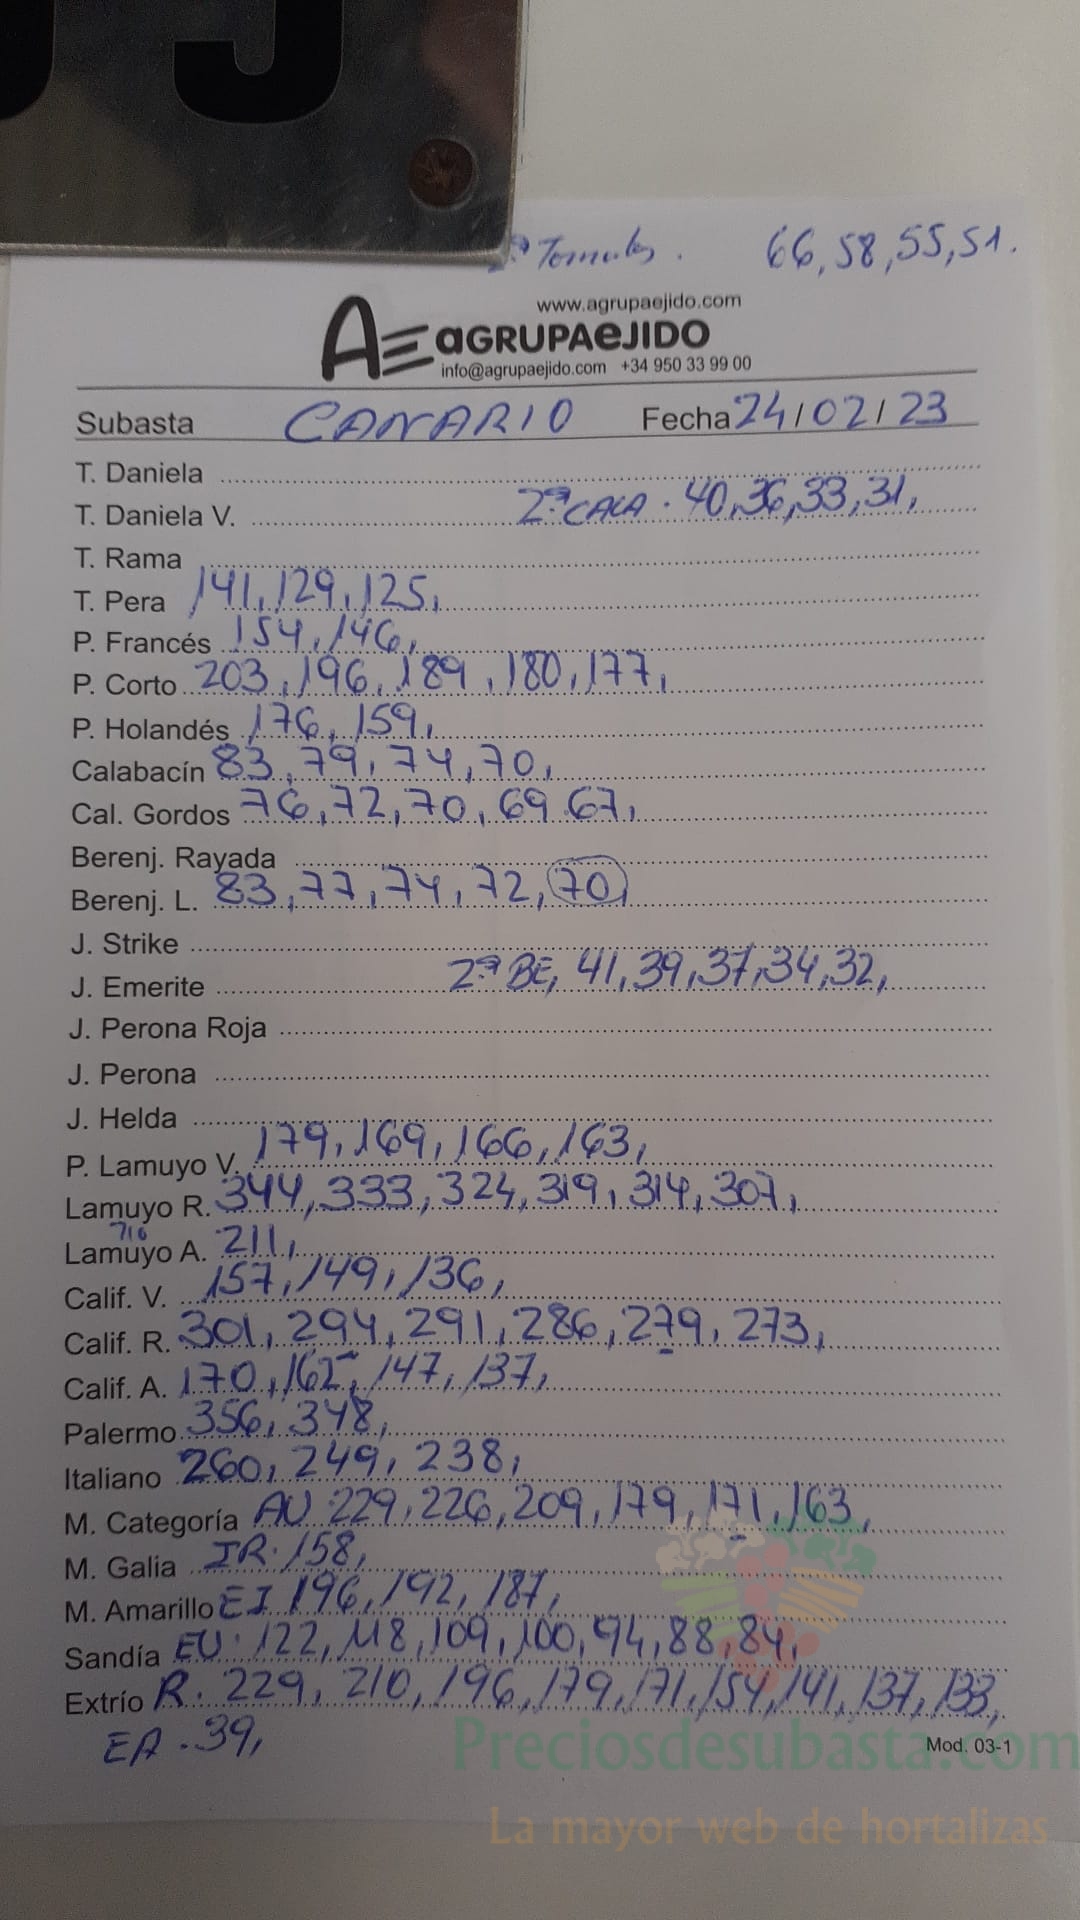 2ª Tomates. 66, 58, 55, 51.
www.agrupaejido.com
AE aGRUPAeJIDO
info@agrupaejido.com +34 950 33 99 00
Subasta CANARIO Fecha 24/02/23
T. Daniela
T. Daniela V. 2ª CALA. 40, 36, 33, 31,
T. Rama
T. Pera 141, 129, 125,
P. Francés 154, 146,
P. Corto 203, 196, 189, 180, 177,
P. Holandés 176, 159,
Calabacín 83, 79, 74, 70,
Cal. Gordos 76, 72, 70, 69 67,
Berenj. Rayada
Berenj. L. 83, 77, 74, 72, 70,
J. Strike
J. Emerite 2ª BE, 41, 39, 37, 34, 32,
J. Perona Roja
J. Perona
J. Helda
P. Lamuyo V. 179, 169, 166, 163,
Lamuyo R. 344, 333, 324, 319, 314, 307,
716
Lamuyo A. 211,
Calif. V. 157, 149, 136,
Calif. R. 301, 294, 291, 286, 279, 273,
Calif. A. 170, 162, 147, 137,
Palermo 356, 348,
Italiano 260, 249, 238,
M. Categoría AU 229, 226, 209, 179, 171, 163,
M. Galia IR. 158,
M. Amarillo EI 196, 192, 187,
Sandía EU. 122, 118, 109, 100, 94, 88, 84,
Extrío R. 229, 210, 196, 179, 171, 154, 141, 137, 133,
EA. 39,
Mod. 03-1
Preciosdesubasta.com
La mayor web de hortalizas